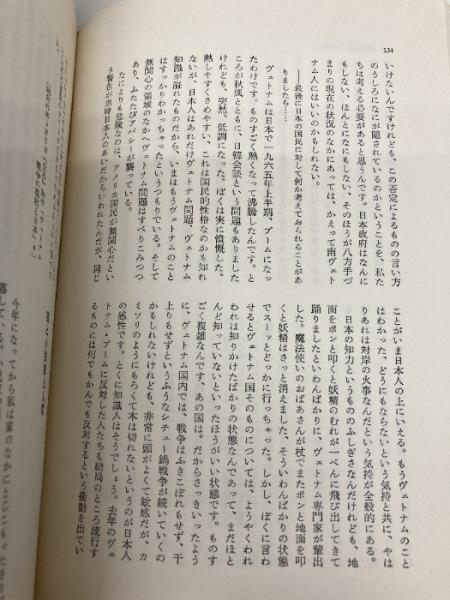 134
いけないんですけれども、この否定によるものの言い方
のうしろになにが隠されているのかということを、私た
ちは考える必要があると思うんです。日本政府はなんに
もしない、ほんとになにもしない、そのほうが八方手づ
まりの現在の状況のなかにあっては、かえって南ヴェト
ナム人にはいいのかもしれない。
――最後に日本の国民に対して何か考えておられることがあ
りましたら……
ヴェトナムは日本で一九六五年上半期、ブームになっ
たわけです。ものすごく熱くなって沸騰したんです。と
ころが秋風とともに、日韓会談という問題もありました
けれども、突然、低調になった。ぼくは実に憤慨した。
熱しやすくさめやすい、これは国民的性格なのかも知れ
ないが、日本人はあれだけヴェトナム問題、ヴェトナム
知識が溢れたものだから、いまはもうヴェトナムのこと
はすっかりわかっちゃったというつもりでいる。そして
無関心の領域のなかへヴェトナム問題はすべりこみつつ
あり、ふたたびアパシーが襲っている。
なによりも危険なのは、アメリカ国民の無関心だとい
う警告が当時日本人のあいだからいわれたんだが、同じ
ことがいま日本人の上にいえる。もうヴェトナムのこと
はわかった、どうにもならないという気持と共に、やは
りあれは対岸の火事なんだという気持が全般的にある。
日本の知力というもののふしぎさなんだけれども、地
面をポンと叩くと妖精のむれが一ぺんに飛び出してきて
踊りましたといわんばかりに、ヴェトナム専門家が輩出
した。魔法使いのおばあさんが杖でまたポンと地面を叩
くと妖精はさっと消えました、そういわんばかりの状態
でスーッとどっかに行っちゃった。しかし、ぼくに言わ
せるとヴェトナムそのものについては、ようやくわれ
われは知りかけたばかりの状態なんであって、まだほと
んど知っていないといったほうがいい状態です。ものす
ごく複雑なんです、あの国は。だからさっきいったよう
に、ヴェトナム国内では、戦争はふきこぼれもせず、干
上りもせずというふうなシチュー鍋戦争が続いていくの
かもしれないけれども、非常に頭がよくて敏感だが、カ
ミソリのようにもろくて木は切れないというのが日本人
の感性です。とくに知識人はそうでしょう。去年のヴェ
トナム・ブームに反対した人たちも結局のところ流行す
るものには何でもかんでも反対するという衝動を出てい
今年になってから私は家のなかにとじこもったき